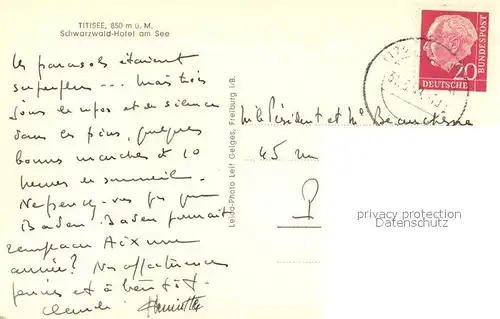 TITISEE, 850 m ü. M.
Schwarzwald-Hotel am See
les parasols étaient
superflus... mais trois
jours de repos et de silence
dans les pins, quelques
bonnes marches et 10
heures en sommeil.
Ne pensez-vous pas que
Baden-Baden pourrait
remplacer Aix une
année? Nos affectueuses
pensées et à bientôt.
Claude Henriette
Leica-Photo Leif Geiges, Freiburg i/B.
Président et Me
45
P
20
DEUTSCHE
BUNDESPOST
privacy protection
Datenschutz